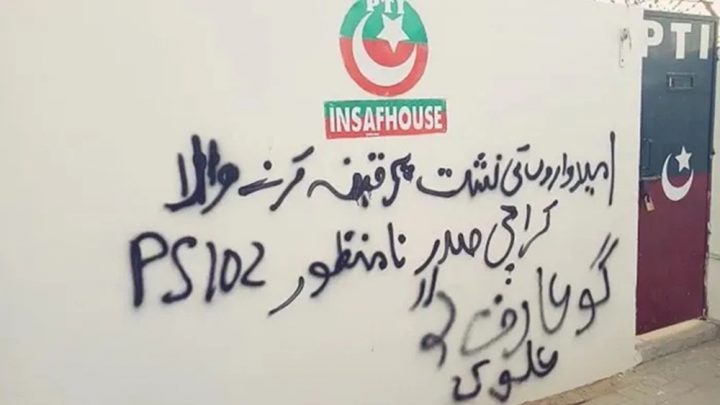 PTI
INSAFHOUSE
PTI
امیدواروں کی نشست پر قبضہ کرنے والا
کراچی صدر نامنظور PS102
گو عارف گو
علوی